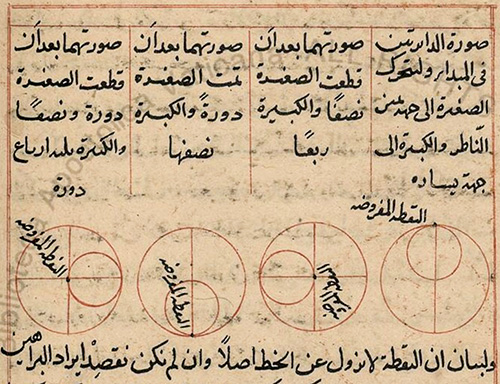 صورة الدايرتين
فى المبدأ ولتتحرك
الصغيرة الى جهة يمين
الناظر والكبيرة الى
جهة يساره
صورتهما بعد ان
قطعت الصغيرة
نصفًا والكبيرة
ربعًا
صورتهما بعد ان
تمت الصغيرة
دورةً والكبيرة
نصفها
صورتهما بعد ان
قطعت الصغيرة
دورة ونصفًا
والكبيرة ثلثة ارباع
دورة
النقطة المفروضة
النقطة المفروضة
النقطة المفروضة
النقطة المفروضة
ولبيان ان النقطة لا تزول عن الخط اصلًا وان لم نكن نقصد ايراد البراهين